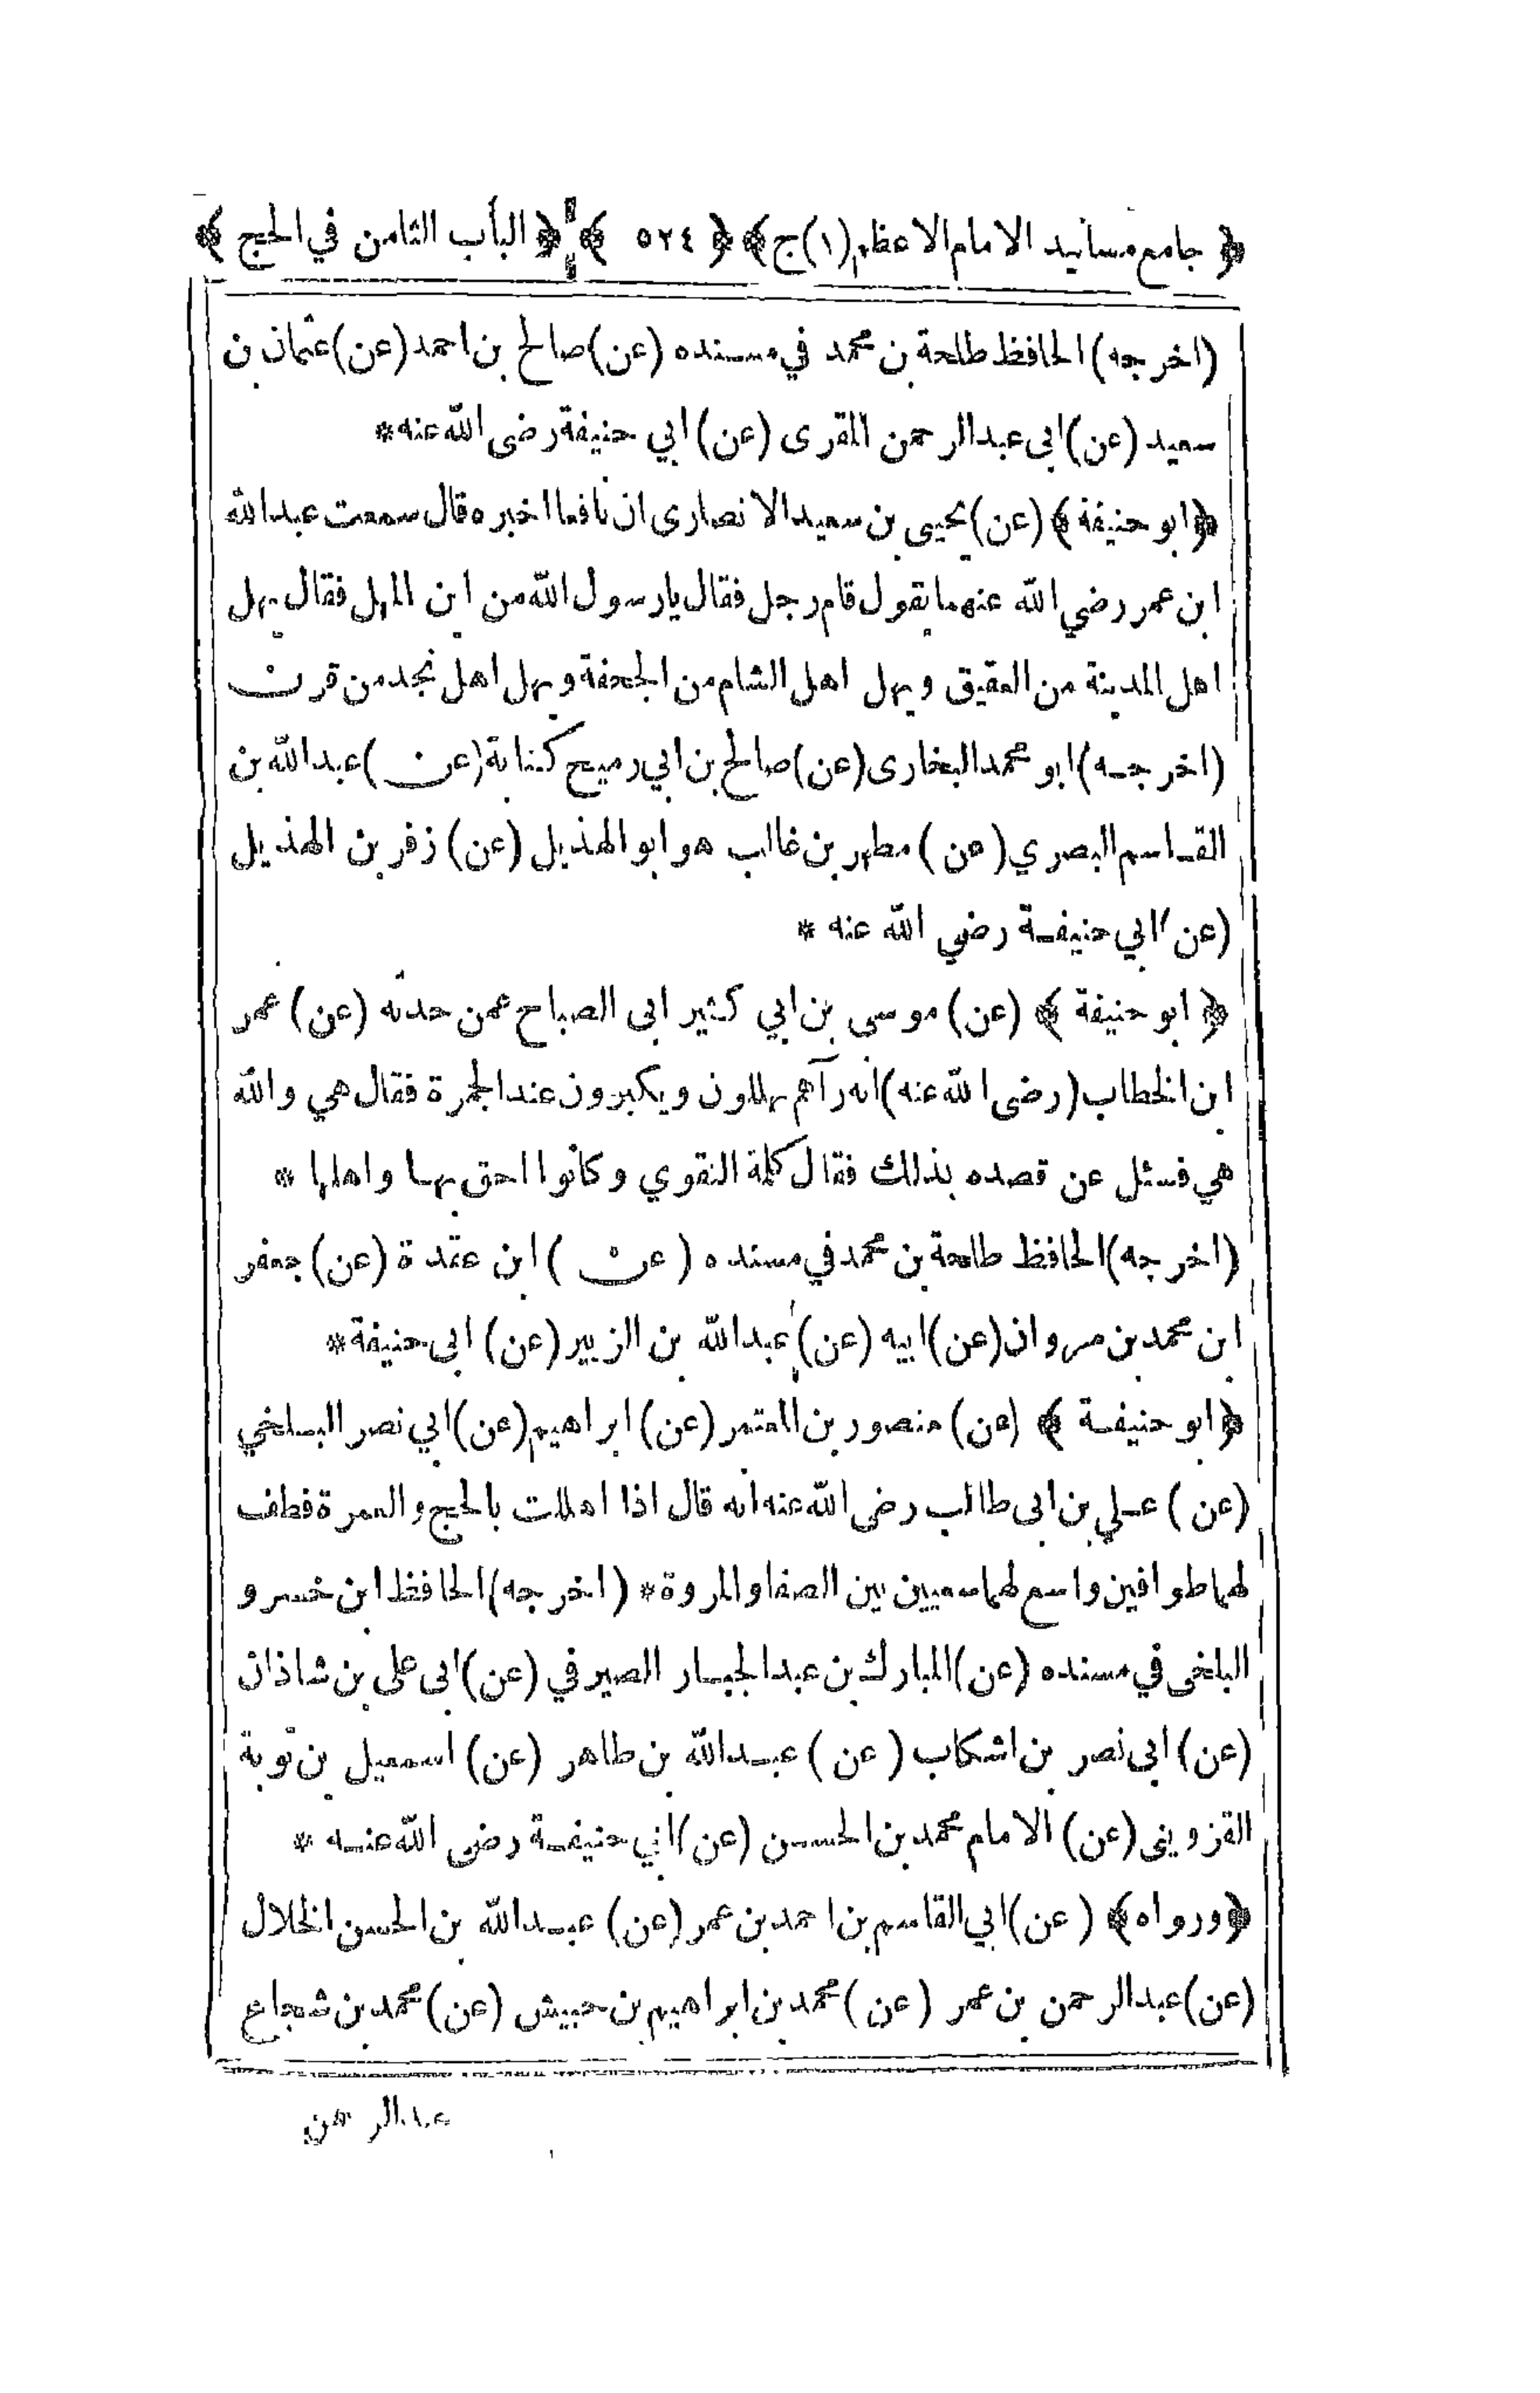 ﴿ جامع مسانيد الامام الاعظم (١) ج ﴾ ﴿ ٥٢٤ ﴾ ﴿ الباب الثامن في الحج ﴾
(اخرجه) الحافظ طلحة بن محمد في مسنده (عن) صالح بن احمد (عن) عثمان بن
سعيد (عن) ابى عبد الرحمن المقرى (عن) ابي حنيفة رضى الله عنه *
﴿ ابو حنيفة ﴾ (عن) يحيى بن سعيد الانصارى ان نافعا اخبره قال سمعت عبد الله
ابن عمر رضي الله عنهما يقول قام رجل فقال يارسول الله من اين المهل فقال يهل
اهل المدينة من العقيق ويهل اهل الشام من الجحفة ويهل اهل نجد من قرن
(اخرجه) ابو محمد البخارى (عن) صالح بن ابي رميح كتابة (عن) عبد الله بن
القاسم البصري (عن) مطهر بن غالب هو ابو الهذيل (عن) زفر بن الهذيل
(عن) ابي حنيفة رضي الله عنه *
﴿ ابو حنيفة ﴾ (عن) موسى بن ابي كثير ابى الصباح عمن حدثه (عن) عمر
ابن الخطاب (رضى الله عنه) انه رآهم يهللون ويكبرون عند الجمرة فقال هي والله
هي فسئل عن قصده بذلك فقال كلمة التقوي وكانوا احق بها واهلها *
(اخرجه) الحافظ طلحة بن محمد في مسنده (عن) ابن عقدة (عن) جعفر
ابن محمد بن مروان (عن) ابيه (عن) عبد الله بن الزبير (عن) ابى حنيفة *
﴿ ابو حنيفة ﴾ (عن) منصور بن المعتمر (عن) ابراهيم (عن) ابي نصر البلخي
(عن) علي بن ابى طالب رضى الله عنه انه قال اذا اهللت بالحج والعمرة فطف
لهما طوافين واسع لهما سعيين بين الصفا والمروة * (اخرجه) الحافظ ابن خسرو
البلخى في مسنده (عن) المبارك بن عبد الجبار الصيرفي (عن) ابى على بن شاذان
(عن) ابى نصر بن اشكاب (عن) عبد الله بن طاهر (عن) اسمعيل بن توبة
القزوينى (عن) الامام محمد بن الحسن (عن) ابي حنيفة رضى الله عنه *
﴿ ورواه ﴾ (عن) ابي القاسم بن احمد بن عمر (عن) عبد الله بن الحسن الخلال
(عن) عبد الرحمن بن عمر (عن) محمد بن ابراهيم بن حبيش (عن) محمد بن شجاع
عبد الرحمن